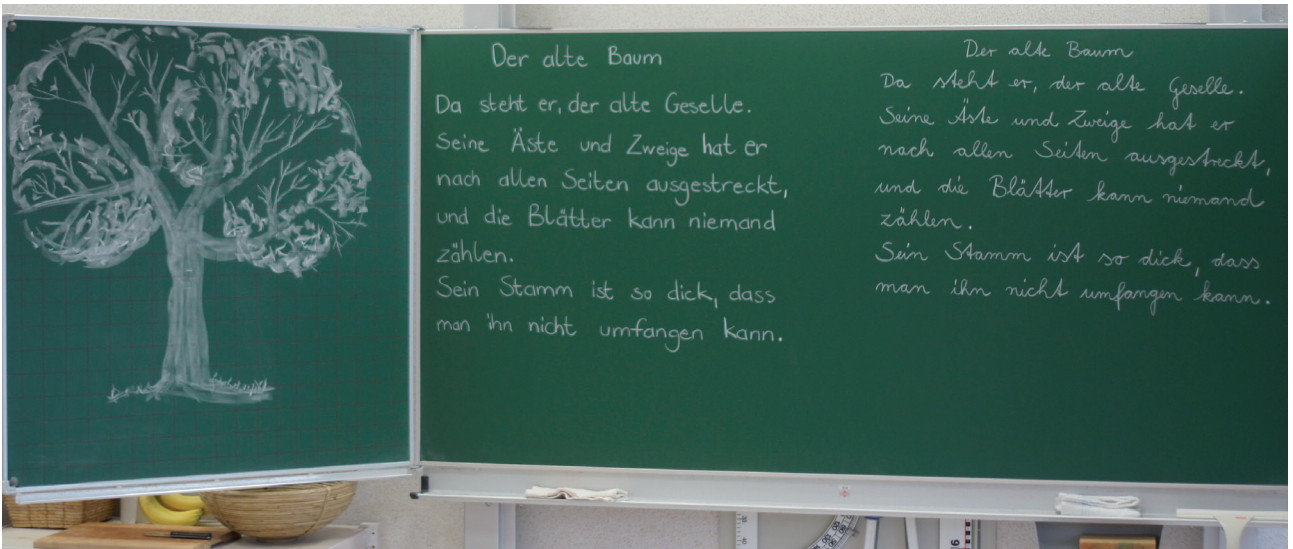 Der alte Baum
Da steht er, der alte Geselle.
Seine Äste und Zweige hat er
nach allen Seiten ausgestreckt,
und die Blätter kann niemand
zählen.
Sein Stamm ist so dick, dass
man ihn nicht umfangen kann.
Der alte Baum
Da steht er, der alte Geselle.
Seine Äste und Zweige hat er
nach allen Seiten ausgestreckt,
und die Blätter kann niemand
zählen.
Sein Stamm ist so dick, dass
man ihn nicht umfangen kann.